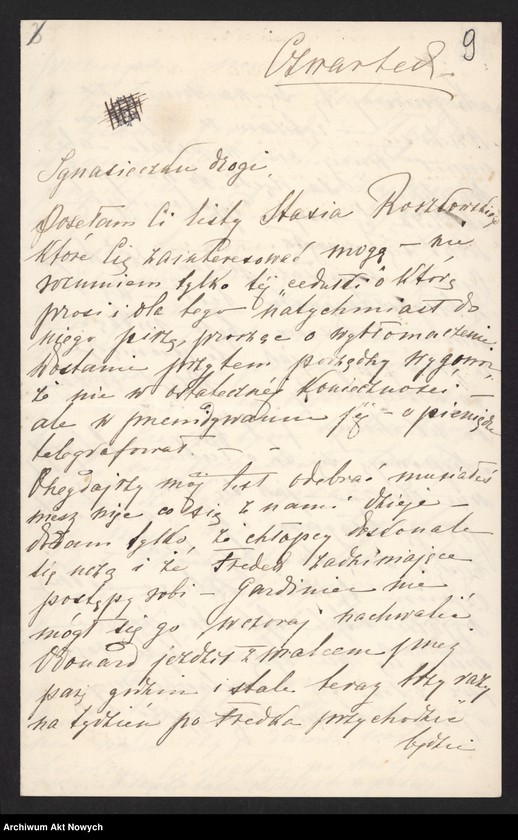 9
Czwartek
Ignasieczku drogi,
Posełam Ci listy Stasia Roszkowskiego
które Cię zainteresować mogą — nie
rozumiem tylko téj "cedułki" o którą
prosi i dla tego natychmiast do
niego piszę, prosząc o wytłomaczenie
Dostanie przytem porządny
że nie w ostatecznéj konieczności —
ale w przewidywaniu jéj — o pieniądze
telegrafował. — —
Onegdajszy mój list odebrać musiałeś
wiesz więc co się z nami dzieje —
dodam tylko, że chłopcy doskonale
się uczą i że Fredek zadziwiające
postępy robi — Gardinier nie
mógł się go wczoraj nachwalić
Edouard jeździł z malcem przez
parę godzin i stale teraz trzy razy
na tydzień po Fredka przychodzić
będzie
Archiwum Akt Nowych